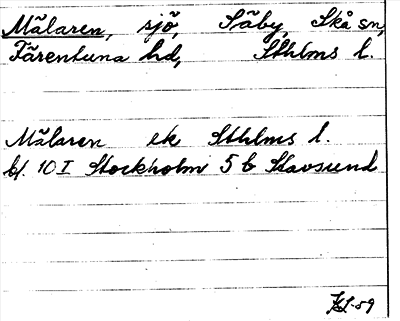 Mälaren, sjö, Säby, Skå sn,
Färentuna hd, Sthlms l.
Mälaren ek Sthlms l.
bl. 10 I Stockholm 5 b Stavsund
59